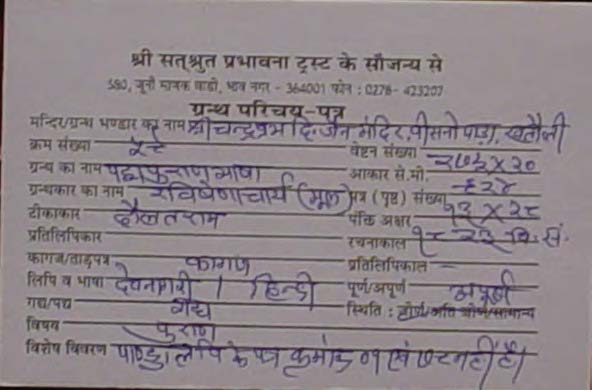 श्री सत्श्रुत प्रभावना ट्रस्ट के सौजन्य से
580, जूनी माणक वाडी, भाव नगर - 364001 फोन : 0278- 423207
ग्रन्थ परिचय-पत्र
मन्दिर/ग्रन्थ भण्डार का नाम श्री चन्द्रप्रभ दि. जैन मंदिर, पीसनो पाड़ा, खतौली
क्रम संख्या ५८ वेष्टन संख्या
ग्रन्थ का नाम पद्मपुराण भाषा आकार से.मी. X २०
ग्रन्थकार का नाम रविषेणाचार्य (मूल) पत्र (पृष्ठ) संख्या ६२४
टीकाकार दौलतराम पंक्ति अक्षर १३ X २८
प्रतिलिपिकार रचनाकाल १८२३ वि. सं.
कागज/ताड़पत्र कागज प्रतिलिपिकाल —
लिपि व भाषा देवनागरी / हिन्दी पूर्ण/अपूर्ण अपूर्ण
गद्य/पद्य गद्य स्थिति : जीर्ण/अति जीर्ण/सामान्य
विषय पुराण
विशेष विवरण पाण्डुलिपि के पत्र क्रमांक ०१ एवं नहीं हैं।